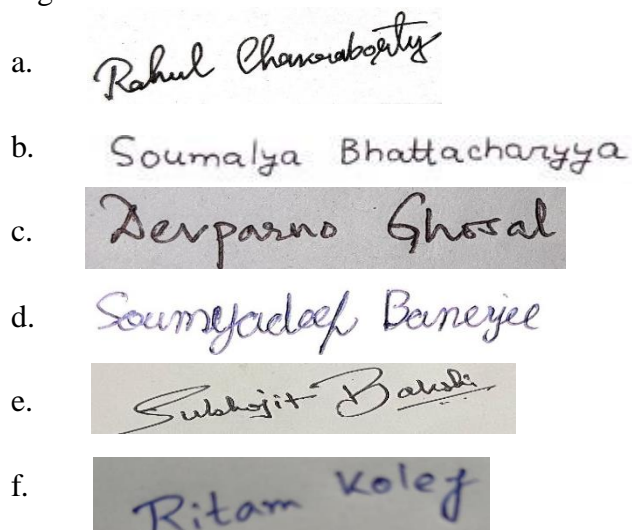 a. Rahul Chakraborty
b. Soumalya Bhattacharyya
c. Devparno Ghosal
d. Soumyadeep Banerjee
e. Subhojit Bakshi
f. Ritam Koley